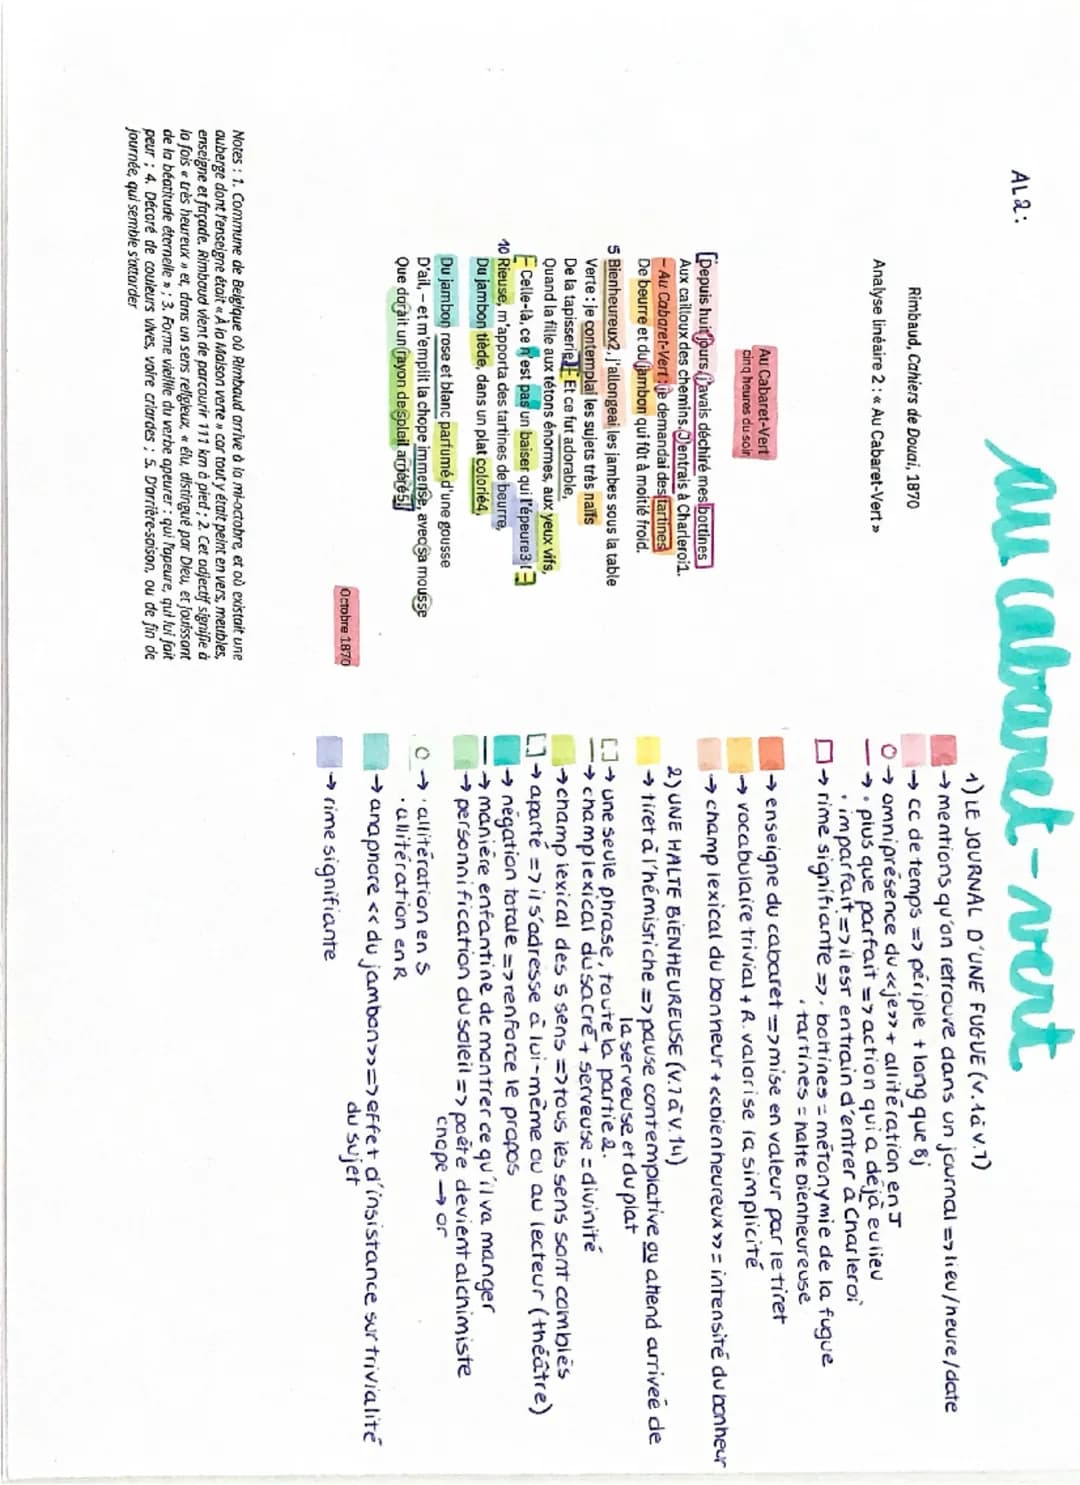 au cabaret-vert.
AL2:
Rimbaud, Cahiers de Douai, 1870
Analyse linéaire 2 : « Au Cabaret-Vert »
Au Cabaret-Vert
cinq heures du soir
Depuis huit jours, j'avais déchiré mes bottines
Aux cailloux des chemins. J'entrais à Charleroi1.
– Au Cabaret-Vert : je demandai des tartines
De beurre et du jambon qui fût à moitié froid.
5 Bienheureux2, j'allongeai les jambes sous la table
Verte : je contemplai les sujets très naïfs
De la tapisserie. – Et ce fut adorable,
Quand la fille aux tétons énormes, aux yeux vifs,
– Celle-là, ce n'est pas un baiser qui l'épeure3 ! –
10 Rieuse, m'apporta des tartines de beurre,
Du jambon tiède, dans un plat colorié4,
Du jambon rose et blanc parfumé d'une gousse
D'ail, – et m'emplit la chope immense, avec sa mousse
Que dorait un rayon de soleil arriéré5.
Octobre 1870
Notes : 1. Commune de Belgique où Rimbaud arrive à la mi-octobre, et où existait une
auberge dont l'enseigne était « À la Maison verte » car tout y était peint en vers, meubles,
enseigne et façade. Rimbaud vient de parcourir 111 km à pied ; 2. Cet adjectif signifie à
la fois « très heureux » et, dans un sens religieux, « élu, distingué par Dieu, et jouissant
de la béatitude éternelle » ; 3. Forme vieillie du verbe apeurer : qui l'apeure, qui lui fait
peur ; 4. Décoré de couleurs vives, voire criardes ; 5. D'arrière-saison, ou de fin de
journée, qui semble s'attarder
1) LE JOURNAL D'UNE FUGUE (v.1 à v.7)
→ mentions qu'on retrouve dans un journal => lieu/heure/date
→ CC de temps => périple + long que 8j
→ omniprésence du «je» + allitération en J
→ • plus que parfait => action qui a déjà eu lieu
• imparfait => il est entrain d'entrer à Charleroi
→ rime signifiante => • bottines = métonymie de la fugue
• tartines = halte bienheureuse
→ enseigne du cabaret => mise en valeur par le tiret
→ vocabulaire trivial + R. valorise la simplicité
→ champ lexical du bonheur + «bienheureux» = intensité du bonheur
2) UNE HALTE BIENHEUREUSE (v.7 à v.14)
→ tiret à l'hémistiche => pause contemplative ou attend arriveé de
la serveuse et du plat
→ une seule phrase, toute la partie 2.
→ champ lexical du sacré + serveuse = divinité
→ champ lexical des 5 sens => tous les sens sont comblés
→ aparté => il s'adresse à lui-même ou au lecteur (théâtre)
→ négation totale => renforce le propos
→ manière enfantine de montrer ce qu'il va manger
→ personnification du soleil => poète devient alchimiste
chope → or
→ • allitération en S
• allitération en R
→ anaphore << du jambon>> => effet d'insistance sur trivialité
du sujet
→ rime signifiante